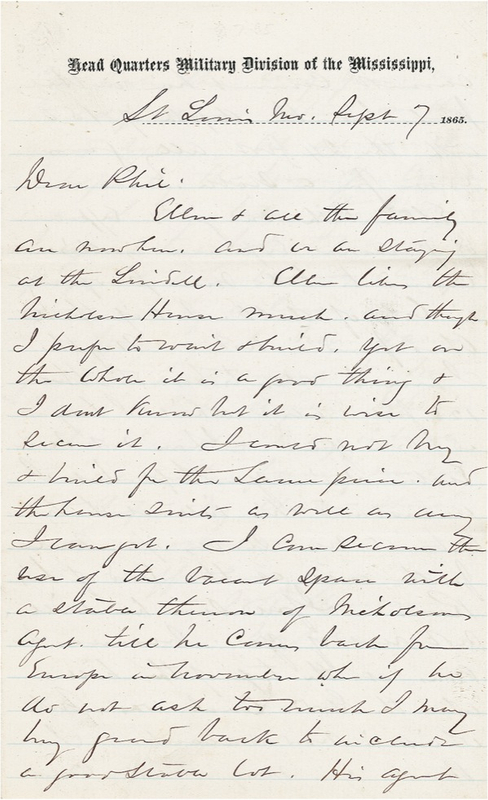 Head Quarters Military Division of the Mississippi,
St Louis Mo. Sept 7 1865.
Dear Phil:
Ellen & all the family
are now here. and we are staying
at the Lindell. Ellen likes the
Nicholson House much. and though
I prefer to wait & build. yet on
the whole it is a good thing &
I dont know but it is wise to
secure it. I could not buy
& build for the same price. and
the house suits as well as any
I can get. I can secure the
use of the vacant space with
a stable thereon of Nicholsons
agent. till he comes back from
Europe in November when if he
do not ask too much I may
buy ground back to include
a good stable lot. His agent